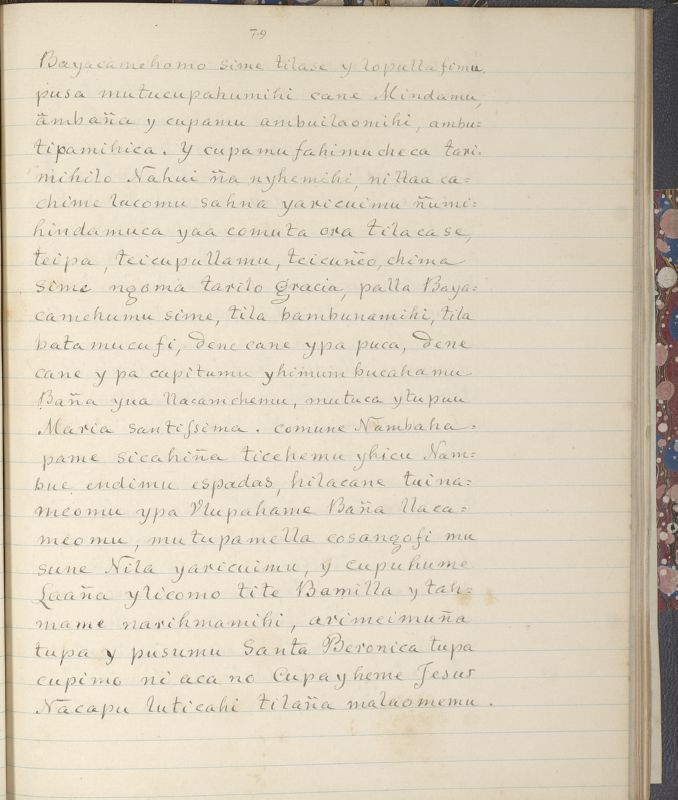 79
Bayacamehomo sime tilase y lopullafimu,
pusa mutucupahumihi cane Mindamu,
ãmbaña y cupamu ambuilaomihi, ambu=
tipamihica. Y cupamu fahimucheca tari=
mihilo Nahui ña nyhemihi, nillaa ca=
chime lacomu sahna yaricuimu ñumi=
hindamuca yaa comuta ora tilacase,
teipa, teicupullamu, teicunẽo, chima
sime ngoma tarilo gracia, palla Baya=
camehumu sime, tila bambunamihi, tila
batamucufi, dene cane ypa puca, dene
cane y pa capitumu yhimumbucahamu
Baña yua llacamchemu, mutuca ytupuu
Maria santissima. comune Nambaha=
pame sicahiña ticehemu yhicu Nam=
bue endimu espadas, hilacane tuina=
meomu ypa Vlupahame Baña llaca=
meomu, mutupamella cosangofi mu
sune Nila yaricuimu, y cupuhume
Laaña ylicomo tite Bamilla y tah=
mame narihmamihi, arimeimuña
tupa y pusumu Santa Beronica tupa
cupimo ni aca no Cupayheme Jesus
Nacapu luticahi tilaña malaomemu.